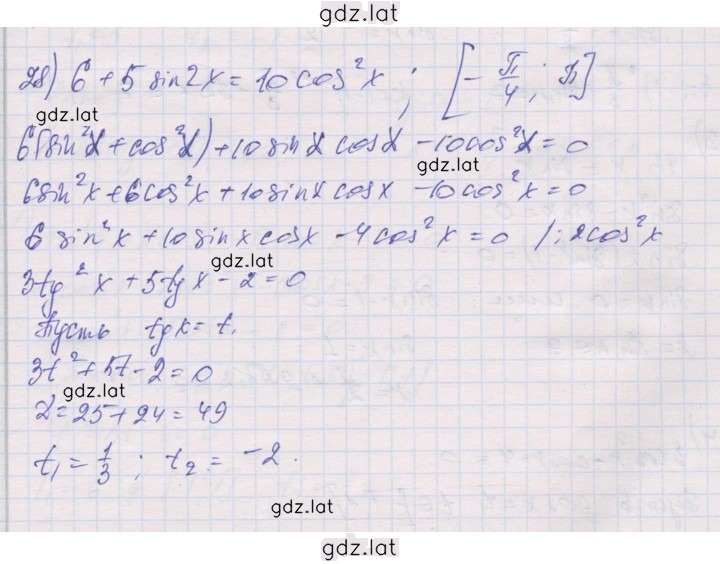 gdz.lat
28) 6 + 5 sin2x = 10cos²x ; [-π/4; π]
gdz.lat
6(sin²x + cos²x) + 10sinx cosx - 10cos²x = 0
gdz.lat
6sin²x + 6cos²x + 10sinx cosx - 10cos²x = 0
6 sin²x + 10sinx cosx - 4cos²x = 0 /: 2cos²x
gdz.lat
3tg²x + 5tgx - 2 = 0
Пусть tgx = t.
3t² + 5t - 2 = 0
gdz.lat
D = 25 + 24 = 49
t₁ = 1/3 ; t₂ = -2.
gdz.lat
gdz.lat